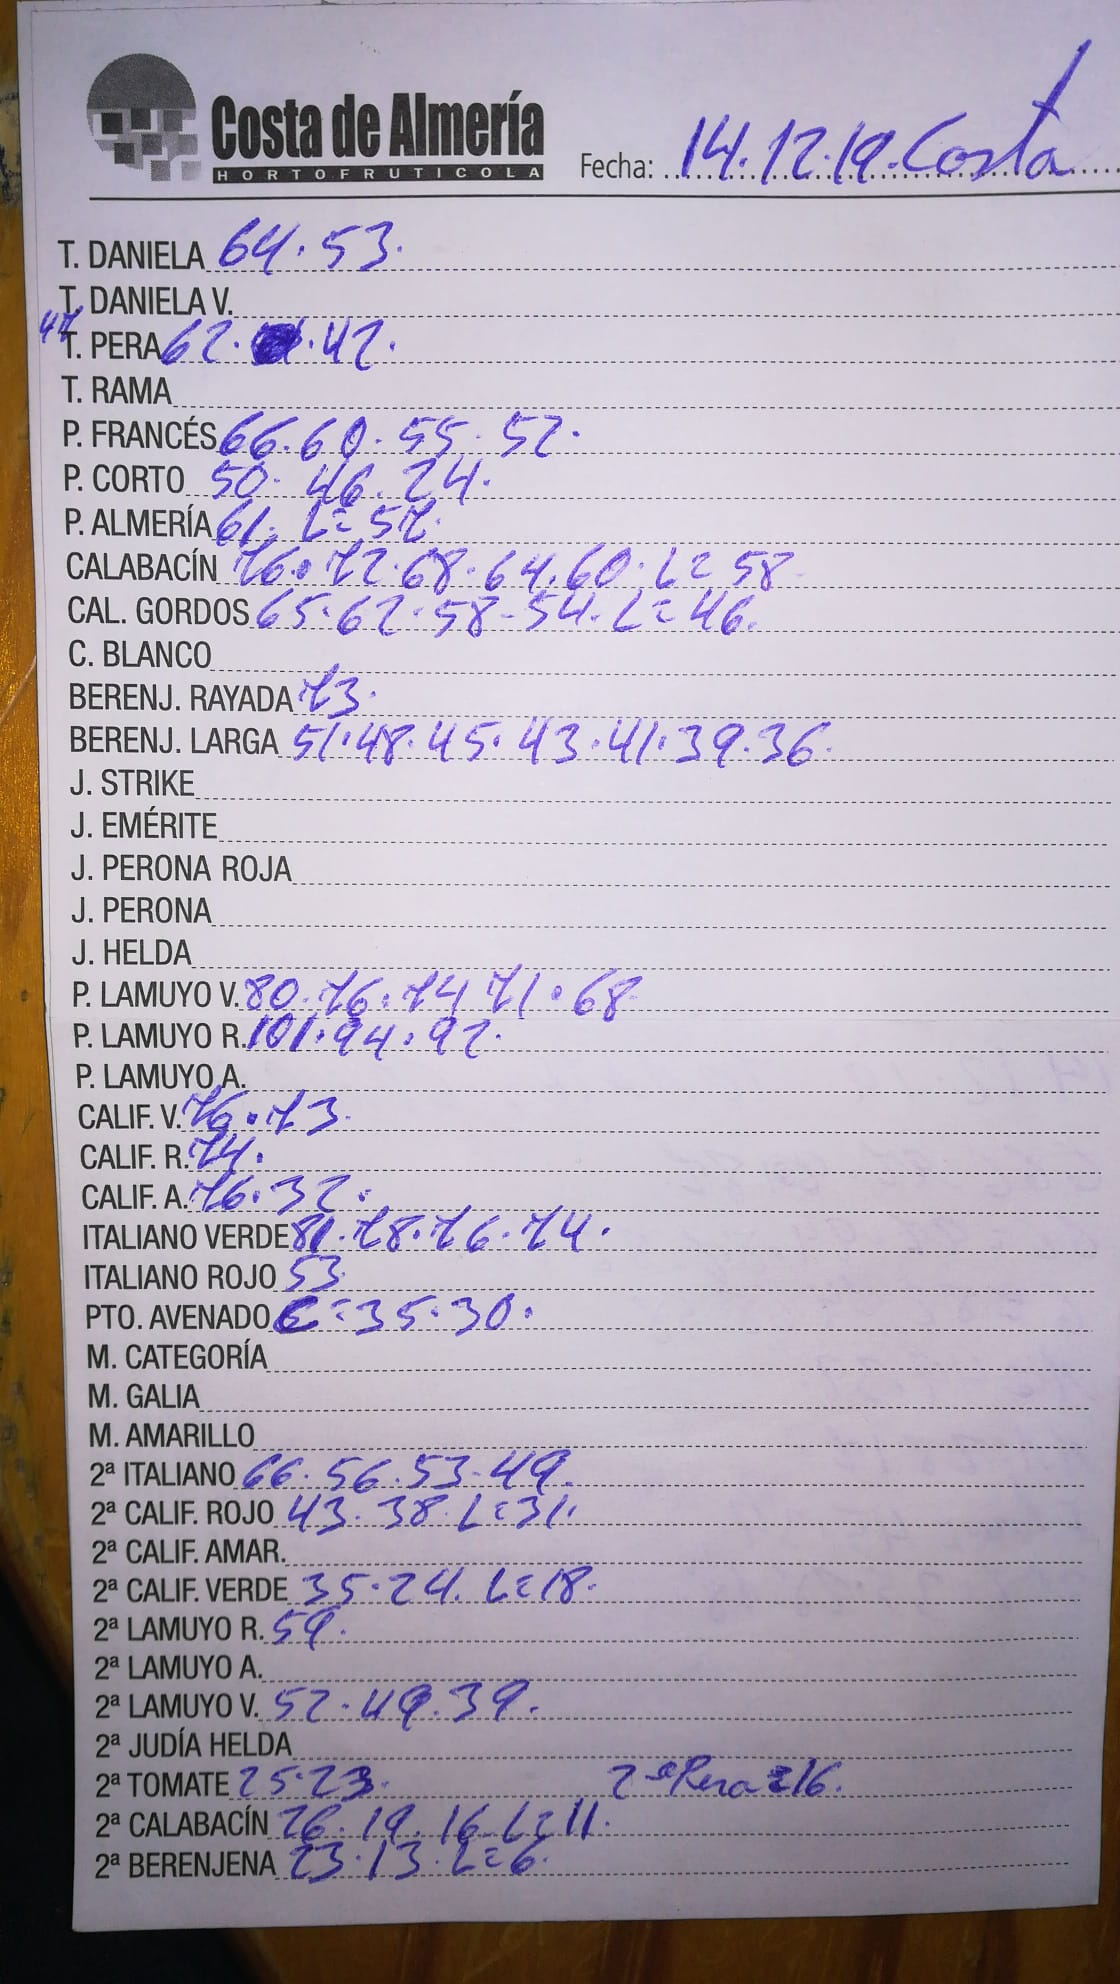 Costa de Almería
HORTOFRUTICOLA
Fecha: 14.12.19. Costa
T. DANIELA 64. 53.
T. DANIELA V.
47
T. PERA 62. 42.
T. RAMA
P. FRANCÉS 66. 60. 55. 52.
P. CORTO 50. 46. 24.
P. ALMERÍA 61. L= 57.
CALABACÍN 76. 72. 68. 64. 60. L= 58
CAL. GORDOS 65. 62. 58. 54. L= 46.
C. BLANCO
BERENJ. RAYADA 73.
BERENJ. LARGA 51. 48. 45. 43. 41. 39. 36.
J. STRIKE
J. EMÉRITE
J. PERONA ROJA
J. PERONA
J. HELDA
P. LAMUYO V. 80. 76. 74 71. 68
P. LAMUYO R. 101. 94. 92.
P. LAMUYO A.
CALIF. V. 76. 73.
CALIF. R. 74.
CALIF. A. 76. 32.
ITALIANO VERDE 81. 78. 76. 74.
ITALIANO ROJO 53
PTO. AVENADO C= 35. 30.
M. CATEGORÍA
M. GALIA
M. AMARILLO
2ª ITALIANO 66. 56. 53. 49.
2ª CALIF. ROJO 43. 38. L= 31.
2ª CALIF. AMAR.
2ª CALIF. VERDE 35. 24. L= 18.
2ª LAMUYO R. 59.
2ª LAMUYO A.
2ª LAMUYO V. 52. 49. 39.
2ª JUDÍA HELDA
2ª TOMATE 25. 23. 2ª Pera = 16.
2ª CALABACÍN 26. 19. 16. L= 11.
2ª BERENJENA 23. 13. L= 6.